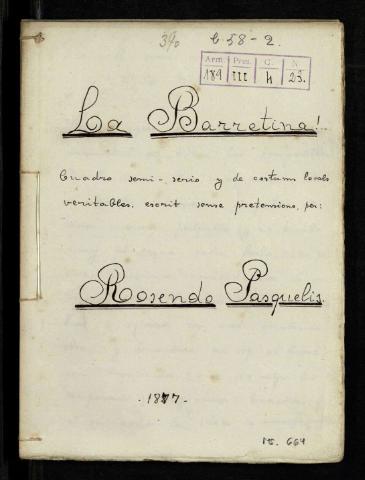 390 C 58-2.
Arm Pres. C. N.
189 III 4 23.
La Barretina!..
Cuadro semi-serio y de costums locals
veritables, escrit sense pretensions, per:
Rosendo Pasquelis.
-1877-
Ms. 664